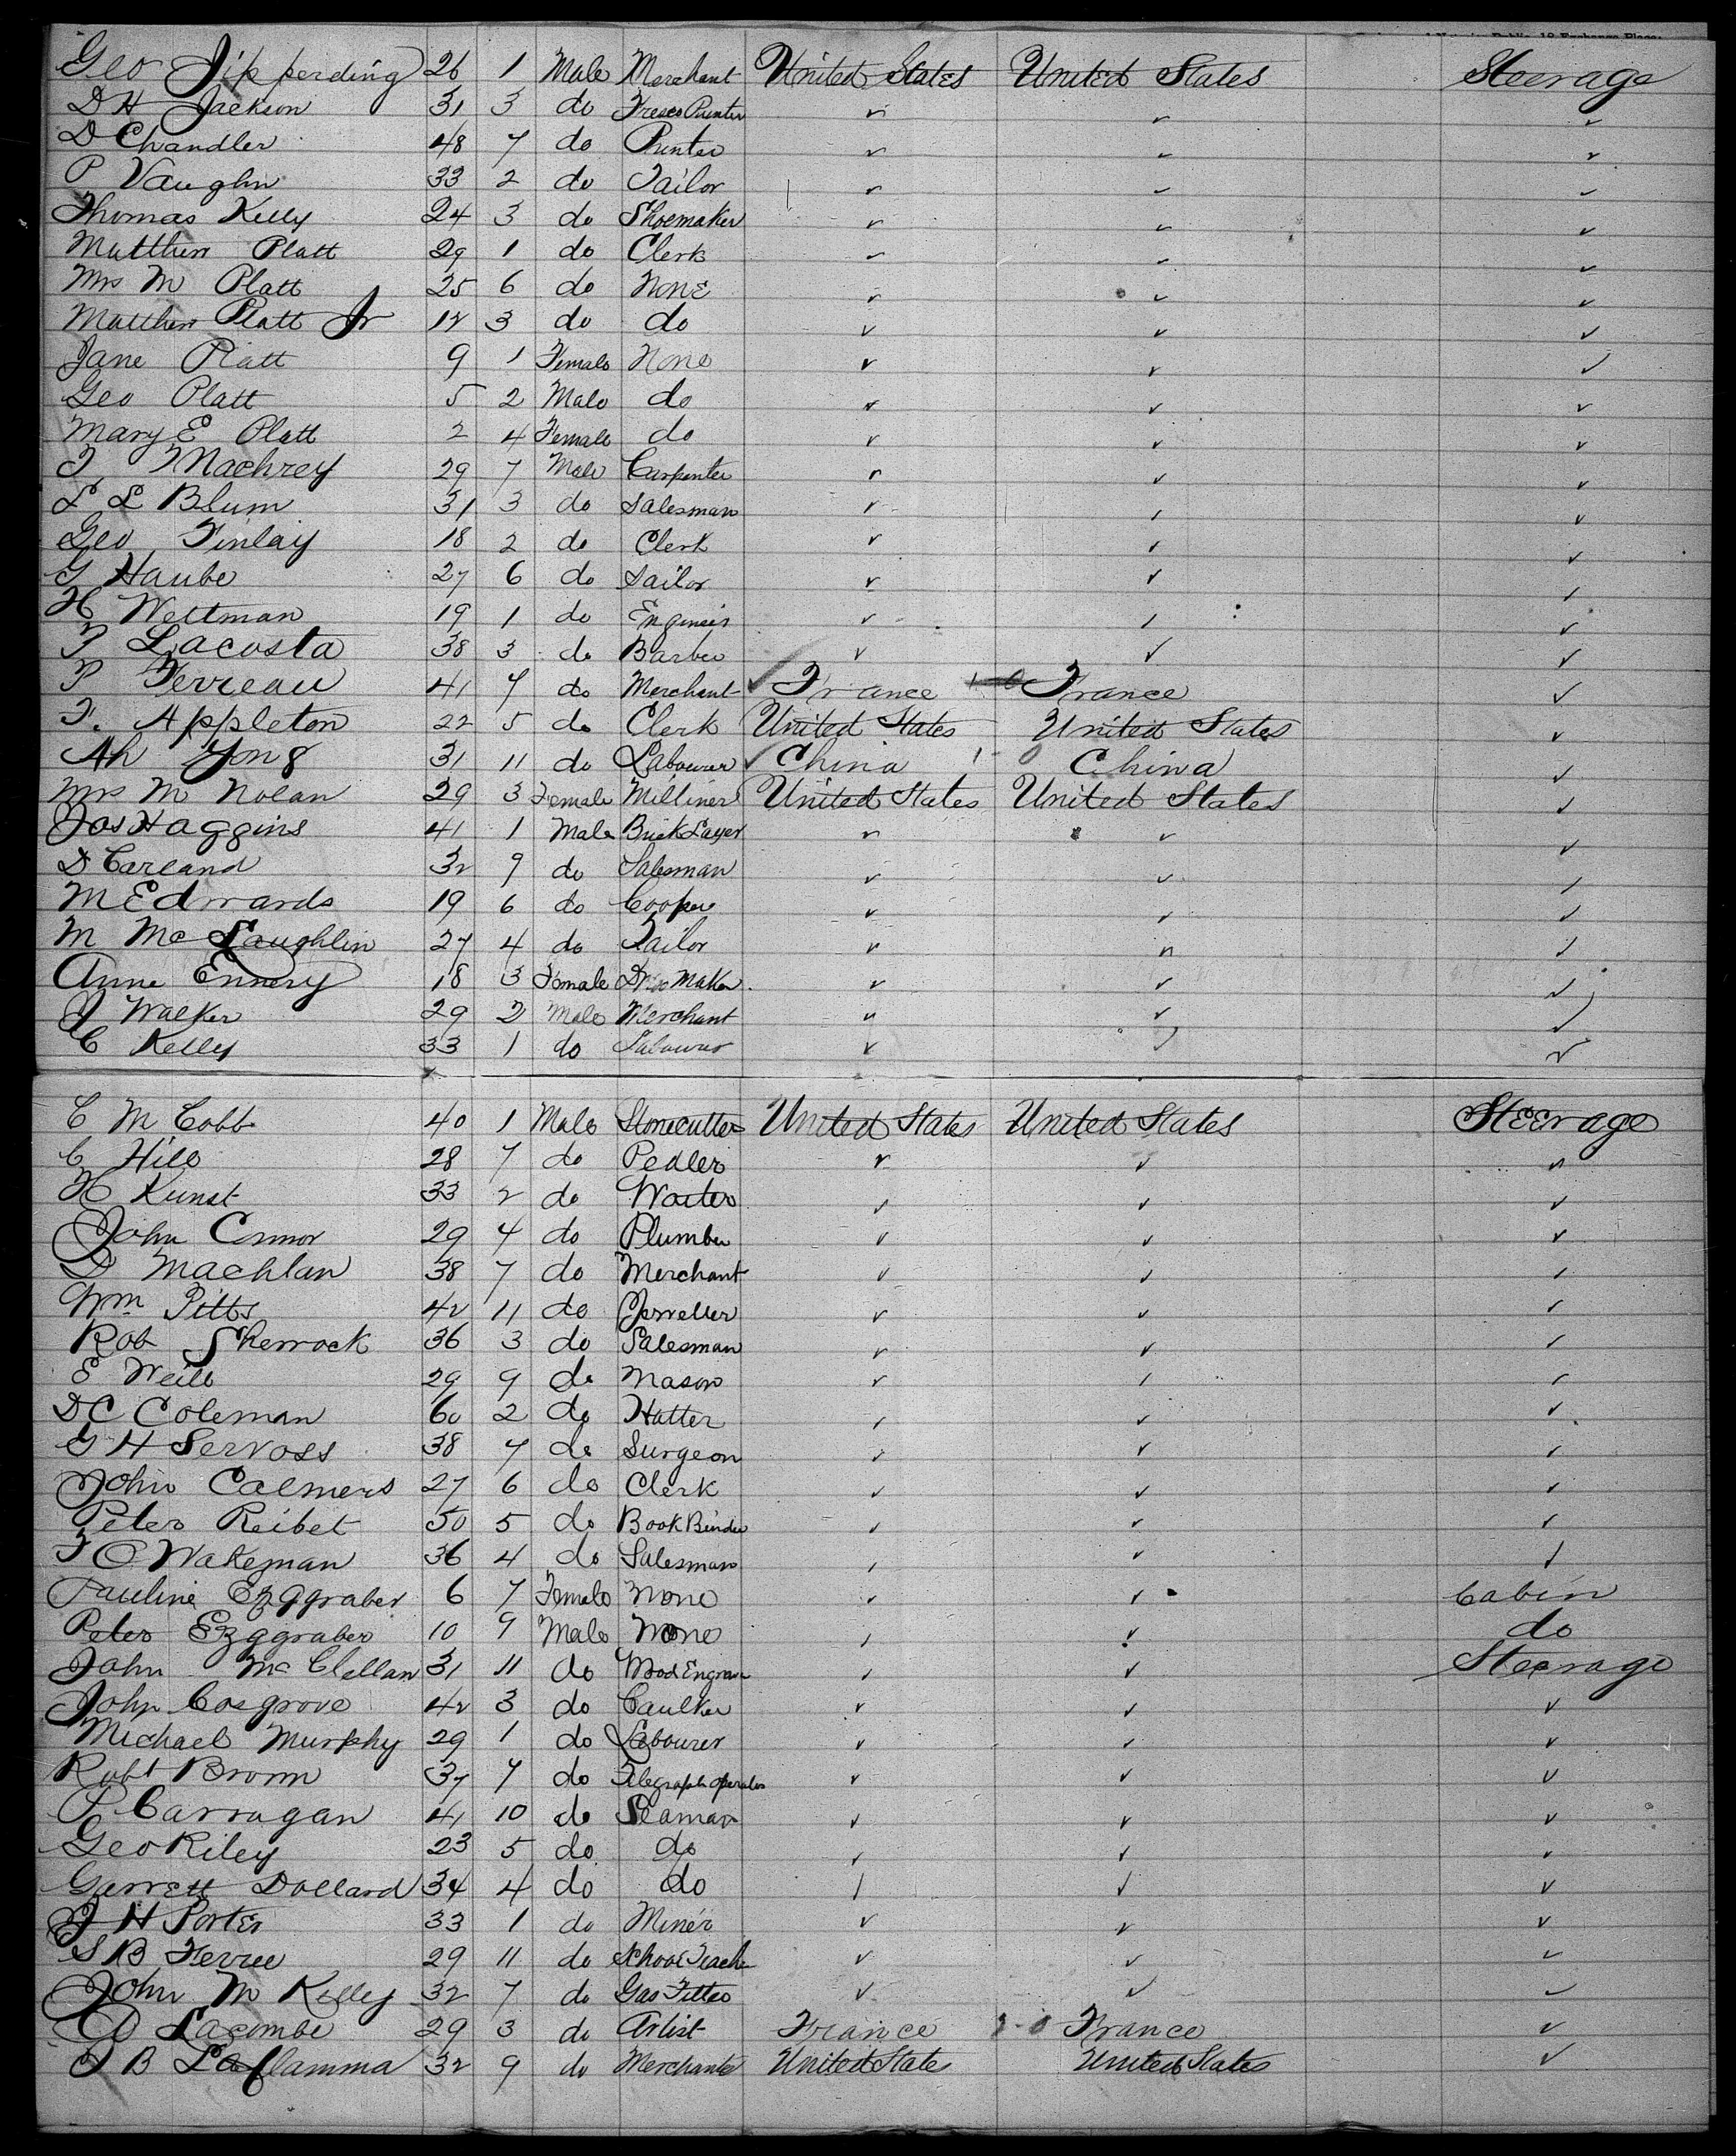 Geo Jipperding 26 1 Male Merchant United States United States Steerage
D H Jackson 31 3 do Fresco Painter ✓ ✓ ✓
D Chandler 48 7 do Printer ✓ ✓ ✓
P Vaughn 33 2 do Tailor ✓ ✓ ✓
Thomas Kelly 24 3 do Shoemaker ✓ ✓ ✓
Matthew Platt 29 1 do Clerk ✓ ✓ ✓
Mrs M Platt 25 6 do None ✓ ✓ ✓
Matthew Platt Jr 12 3 do do ✓ ✓ ✓
Jane Platt 9 1 Female None ✓ ✓ ✓
Geo Platt 5 2 Male do ✓ ✓ ✓
Mary E Platt 2 4 Female do ✓ ✓ ✓
T Machrey 29 7 Male Carpenter ✓ ✓ ✓
L L Blum 31 3 do Salesman ✓ ✓ ✓
Geo Finlay 18 2 do Clerk ✓ ✓ ✓
G Haube 27 6 do Sailor ✓ ✓ ✓
H Wettman 19 1 do Engineer ✓ ✓ ✓
F Lacosta 38 3 do Barber ✓ ✓ ✓
P Ferreau 41 7 do Merchant ✓ France France ✓
F. Appleton 22 5 do Clerk United States United States ✓
Ah Yong 31 11 do Labourer ✓ China China ✓
Mrs M Nolan 29 3 Female Milliner United States United States ✓
Jos Haggins 41 1 Male Brick Layer ✓ ✓ ✓
D Carland 32 9 do Salesman ✓ ✓ ✓
M Edwards 19 6 do Cooper ✓ ✓ ✓
M Mc Laughlin 27 4 do Tailor ✓ ✓ ✓
Anne Ennery 18 3 Female Dress Maker ✓ ✓ ✓
J Walker 29 2 Male Merchant ✓ ✓ ✓
C Kelly 33 1 do Labourer ✓ ✓ ✓
C M Cobb 40 1 Male Stonecutter United States United States Steerage
C Hill 28 7 do Pedler ✓ ✓ ✓
H Kunst 33 2 do Waiter ✓ ✓ ✓
John Connor 29 4 do Plumber ✓ ✓ ✓
D Machlan 38 7 do Merchant ✓ ✓ ✓
Wm Pitts 42 11 do Jeweller ✓ ✓ ✓
Rob Sherrock 36 3 do Salesman ✓ ✓ ✓
E Weill 29 9 do Mason ✓ ✓ ✓
D C Coleman 60 2 do Hatter ✓ ✓ ✓
G H Servoss 38 7 do Surgeon ✓ ✓ ✓
John Calmers 27 6 do Clerk ✓ ✓ ✓
Peter Reibet 50 5 do Book Binder ✓ ✓ ✓
F O Wakeman 36 4 do Salesman ✓ ✓ ✓
Pauline Ezggraber 6 7 Female None ✓ ✓ Cabin
Peter Ezggraber 10 9 Male None ✓ ✓ do
John Mc Clellan 31 11 do Wood Engraver ✓ ✓ Steerage
John Cosgrove 42 3 do Caulker ✓ ✓ ✓
Michael Murphy 29 1 do Labourer ✓ ✓ ✓
Robt Brown 37 7 do Telegraph Operator ✓ ✓ ✓
P Carragan 41 10 do Seaman ✓ ✓ ✓
Geo Riley 23 5 do do ✓ ✓ ✓
Garrett Dollard 34 4 do do ✓ ✓ ✓
J H Porter 33 1 do Miner ✓ ✓ ✓
S B Ferree 29 11 do School Teacher ✓ ✓ ✓
John M Kelley 32 7 do Gas Fitter ✓ ✓ ✓
Lacombe 29 3 do Artist France France ✓
J B Laflamma 32 9 do Merchant United State United States ✓